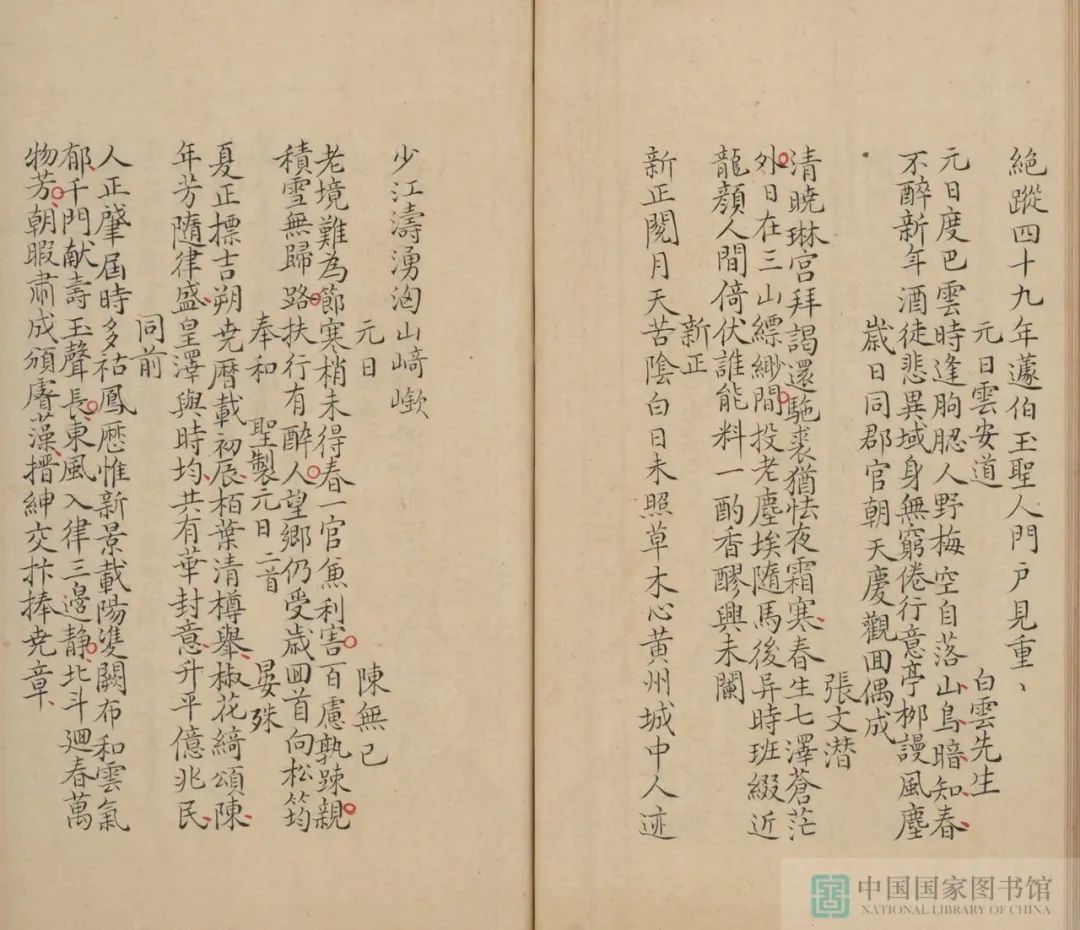 絕蹤四十九年蘧伯玉聖人門戶見重、
元日雲安道　白雲先生
元日度巴雲時逢朐䏰人野梅空自落山鳥暗知春
不醉新年酒徒悲異域身無窮倦行意亭柳謾風塵
歲日同郡官朝天慶觀囬偶成
張文潛
清曉琳宮拜謁還駞裘猶怯夜霜寒春生七澤蒼茫
外日在三山縹緲間投老塵埃隨馬後异時班綴近
龍顏人間倚伏誰能料一酌香醪興未闌
新正
新正閱月天苦陰白日未照草木心黃州城中人迹
少江濤湧洶山﨑嶔
元日　陳無己
老境難為節寒梢未得春一官兼利害百慮孰踈親
積雪無歸路扶行有醉人望鄉仍受歲囬首向松筠
奉和　聖製元日二首　晏殊
夏正標吉朔尭曆載初辰栢葉清樽舉椒花綺頌陳
年芳隨律盛皇澤與時均共有華封意升平億兆民
同前
人正肇屆時多祜鳳厯惟新景載陽䨇闕布和雲氣
郁千門献壽玉聲長東風入律三邉静北斗廻春萬
物芳朝暇肅成頒睿藻搢紳交抃捧尭章
中国国家图书馆
NATIONAL LIBRARY OF CHINA